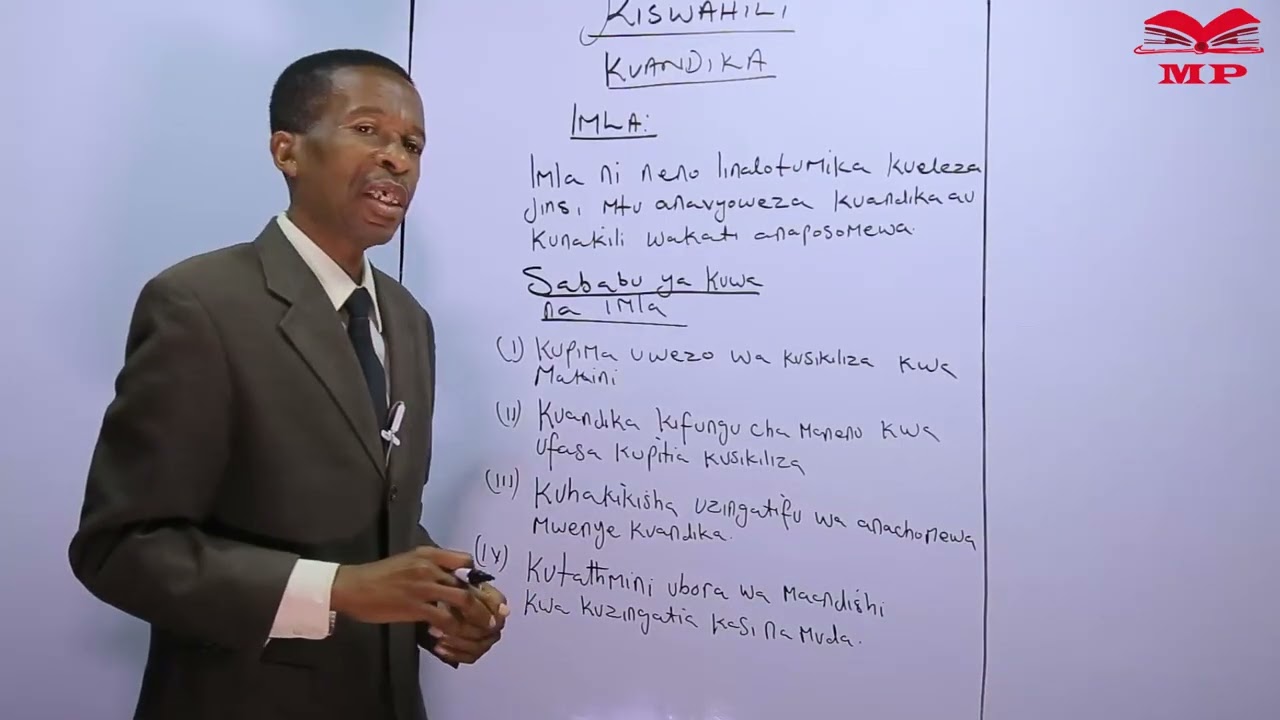 KISWAHILI
KUANDIKA
IMLA:
Imla ni neno linalotumika kueleza
jinsi mtu anavyoweza kuandika au
kunakili wakati anaposomewa.
Sababu ya kuwa
na imla
(I) Kupima uwezo wa kusikiliza kwa
Makini
(II) Kuandika kifungu cha maneno kwa
ufasa kupitia kusikiliza
(III) Kuhakikisha uzingatifu wa anachomewa
Mwenye kuandika.
(IV) Kutathmini ubora wa maandishi
kwa kuzingatia kasi na muda.
MP